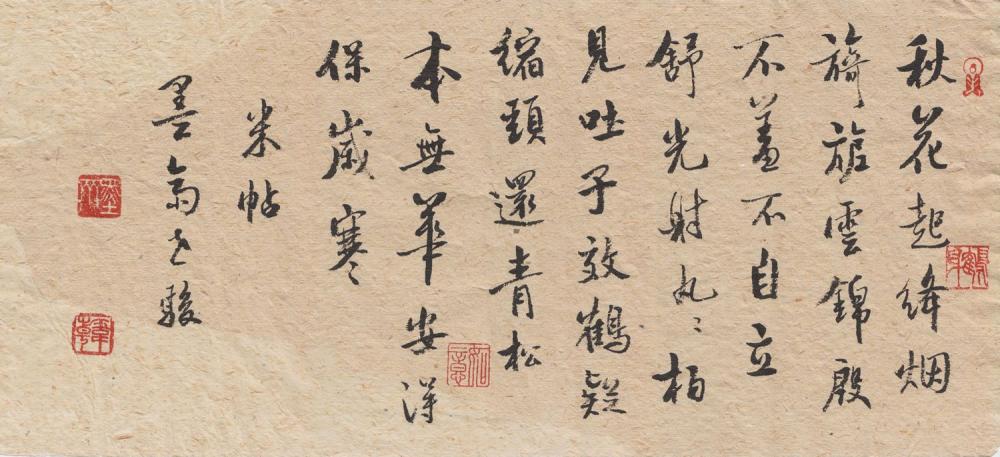 秋花起绛烟
旖旎雲錦殷
不羞不自立
舒光射丸〻柏
見吐子效鶴疑
縮頸還青松
本無華安得
保歲寒〻
米帖
墨
駿